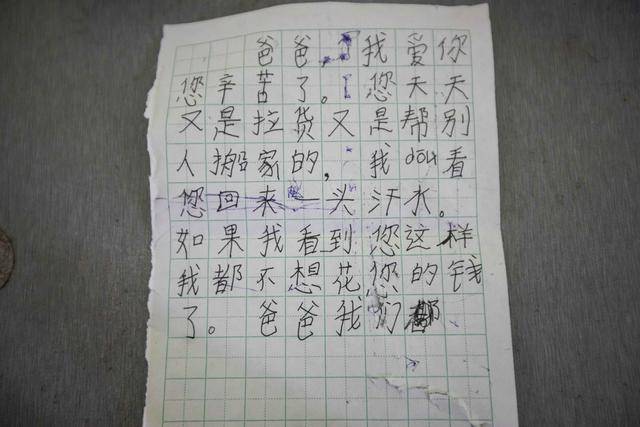 爸爸，我爱你
您辛苦了。您天天
又是拉货又是帮别
人搬家的，我dōu看
您回来一头汗水。
如果我看到您这样
我都不想花您的钱
了。爸爸我们都